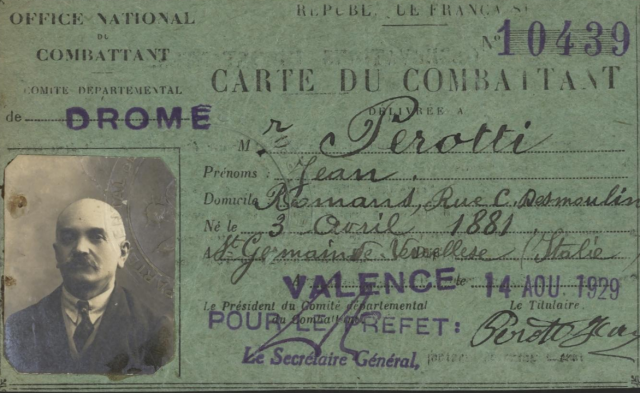 OFFICE NATIONAL
DU
COMBATTANT
COMITÉ DÉPARTEMENTAL
de DROME
RÉPUBLIQUE FRANÇAISE
N° 10439
CARTE DU COMBATTANT
DÉLIVRÉE A
Mr Perotti
Prénoms : Jean.
Domicile Romans, Rue C. Desmoulin
Né le 3 Avril 1881
A St Germain de Vercellese (Italie)
VALENCE le 14 AOU. 1929
Le Président du Comité départemental
du Combattant
Le Titulaire.
POUR LE PREFET:
Perotti Jean
Le Secrétaire Général,